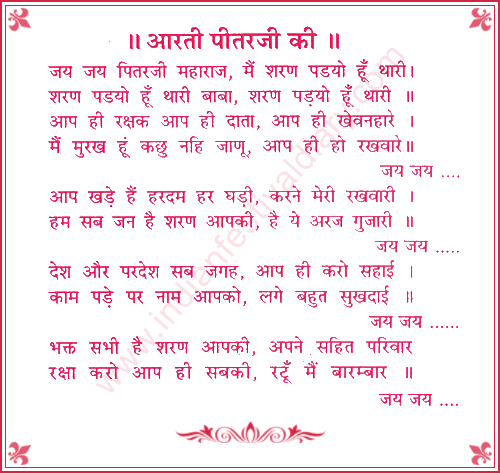 ॥ आरती पीतरजी की ॥
जय जय पितरजी महाराज, मैं शरण पडयो हूँ थारी।
शरण पडयो हूँ थारी बाबा, शरण पड़यो हूँ थारी ॥
आप ही रक्षक आप ही दाता, आप ही खेवनहारे ।
मैं मुरख हूं कछु नहि जाणू, आप ही हो रखवारे॥
जय जय ....
आप खड़े हैं हरदम हर घड़ी, करने मेरी रखवारी ।
हम सब जन है शरण आपकी, है ये अरज गुजारी ॥
जय जय .....
देश और परदेश सब जगह, आप ही करो सहाई ।
काम पड़े पर नाम आपको, लगे बहुत सुखदाई ॥
जय जय ......
भक्त सभी है शरण आपकी, अपने सहित परिवार
रक्षा करो आप ही सबकी, रटूँ मैं बारम्बार ॥
जय जय ....
www.indianfestivaldiary.com